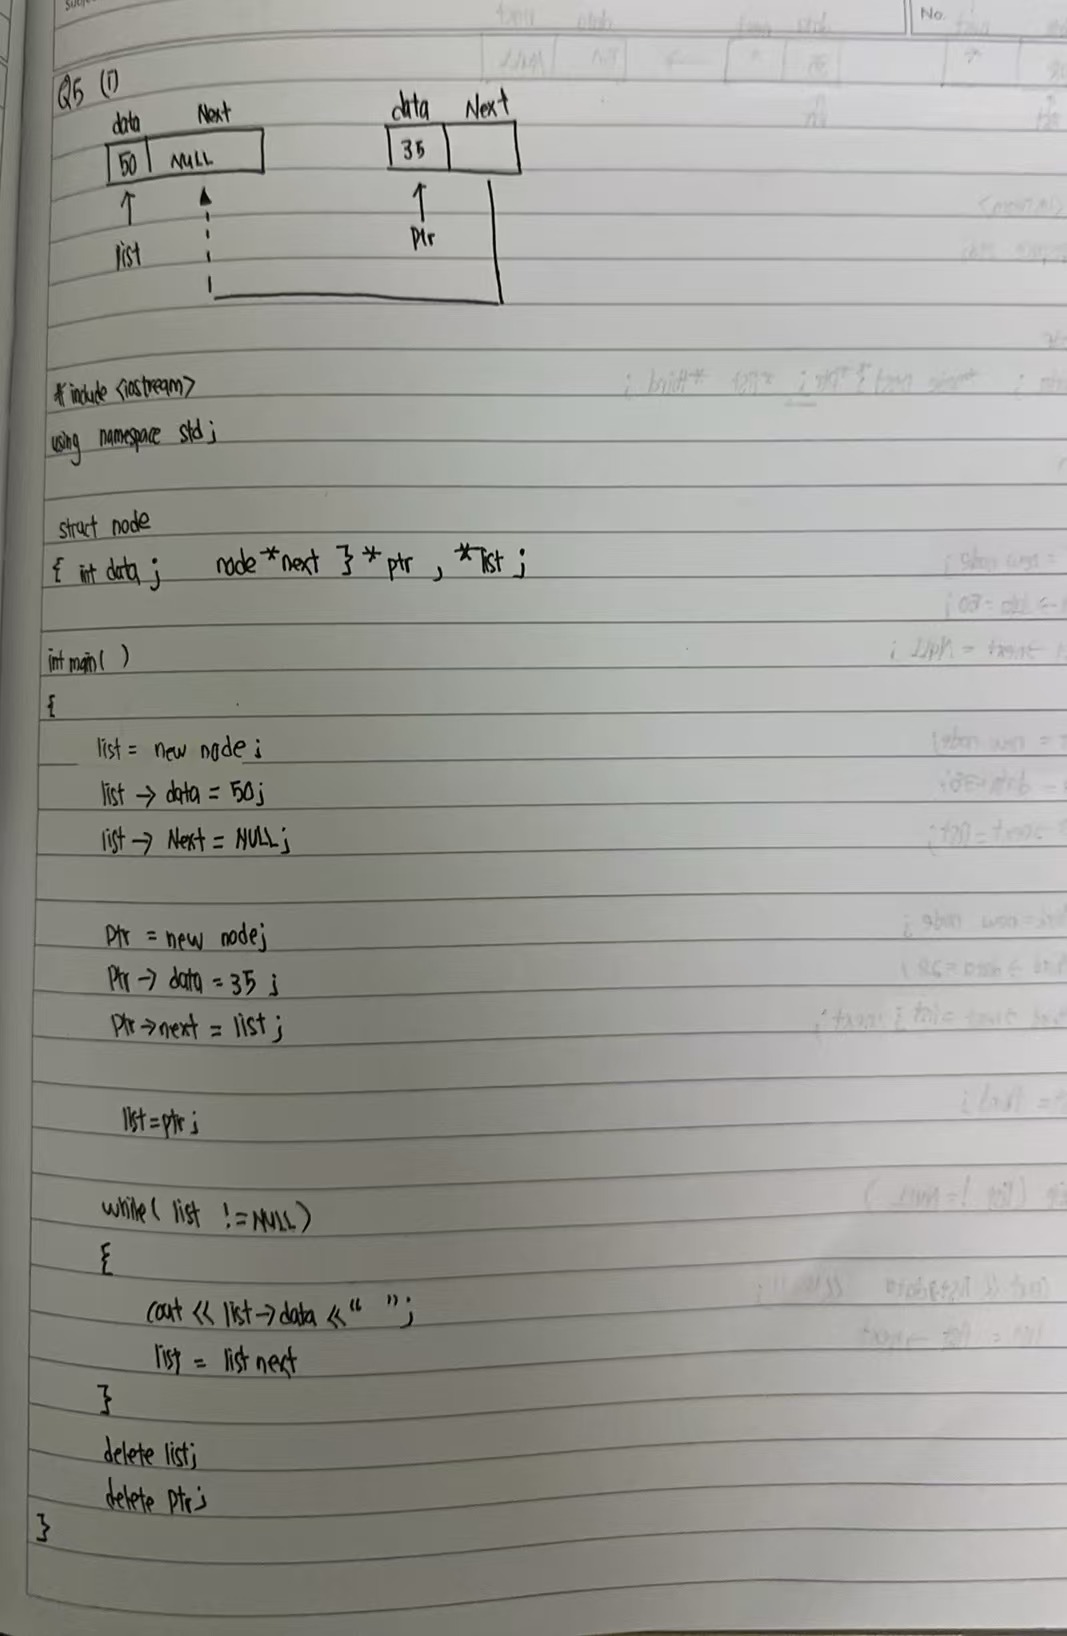 No.
Q5 (i)
data Next data Next
50 NULL 35
list ptr
#include <iostream>
using namespace std;
struct node
{ int data; node*next } *ptr, *list;
int main( )
{
list = new node;
list → data = 50;
list → Next = NULL;
Ptr = new node;
Ptr → data = 35;
Ptr → next = list;
list = ptr;
while( list != NULL)
{
cout << list → data << “ ”;
list = list next
}
delete list;
delete ptr;
}